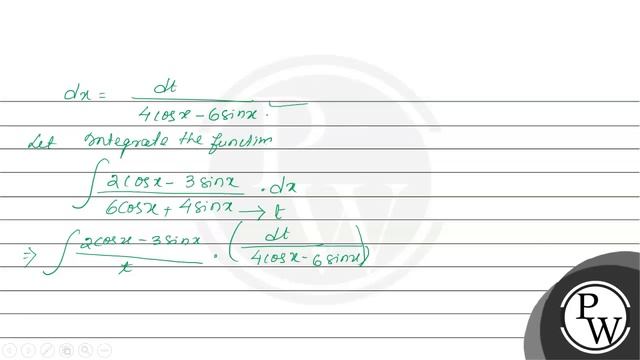 dx = dt / (4cosx - 6sinx).
Let Integrate the function
∫ (2cosx - 3sinx) / (6cosx + 4sinx → t) . dx
⇒ ∫ (2cosx - 3sinx) / t . (dt / (4cosx - 6sinx))
PW
PW